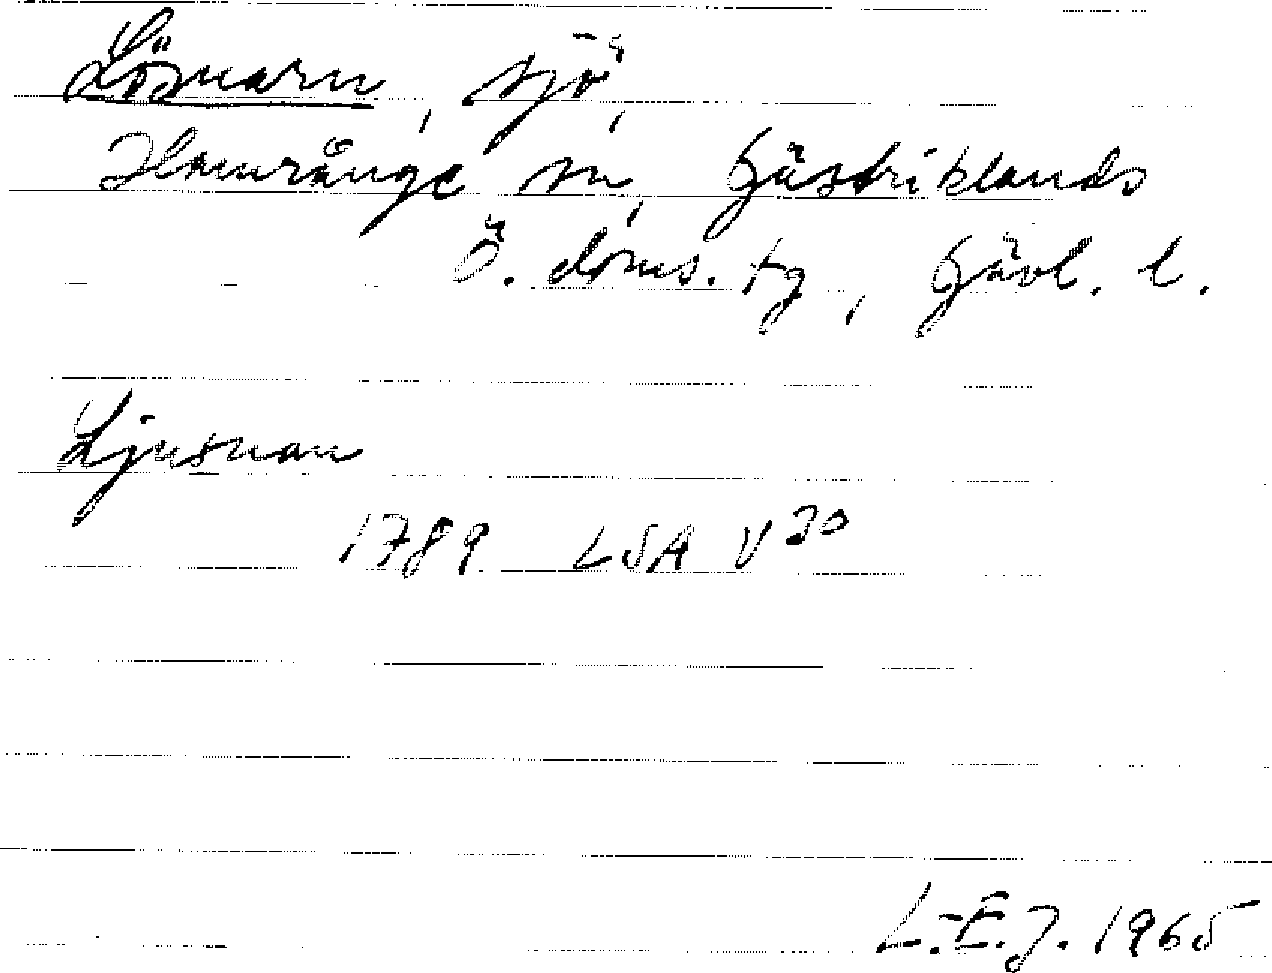 Lösnarn, sjö,
Hamrånge sn, Gästriklands
Ö. doms. tg, Gävl. l.
Ljusnan
1789 LSA V 30
L.-E.J. 1965